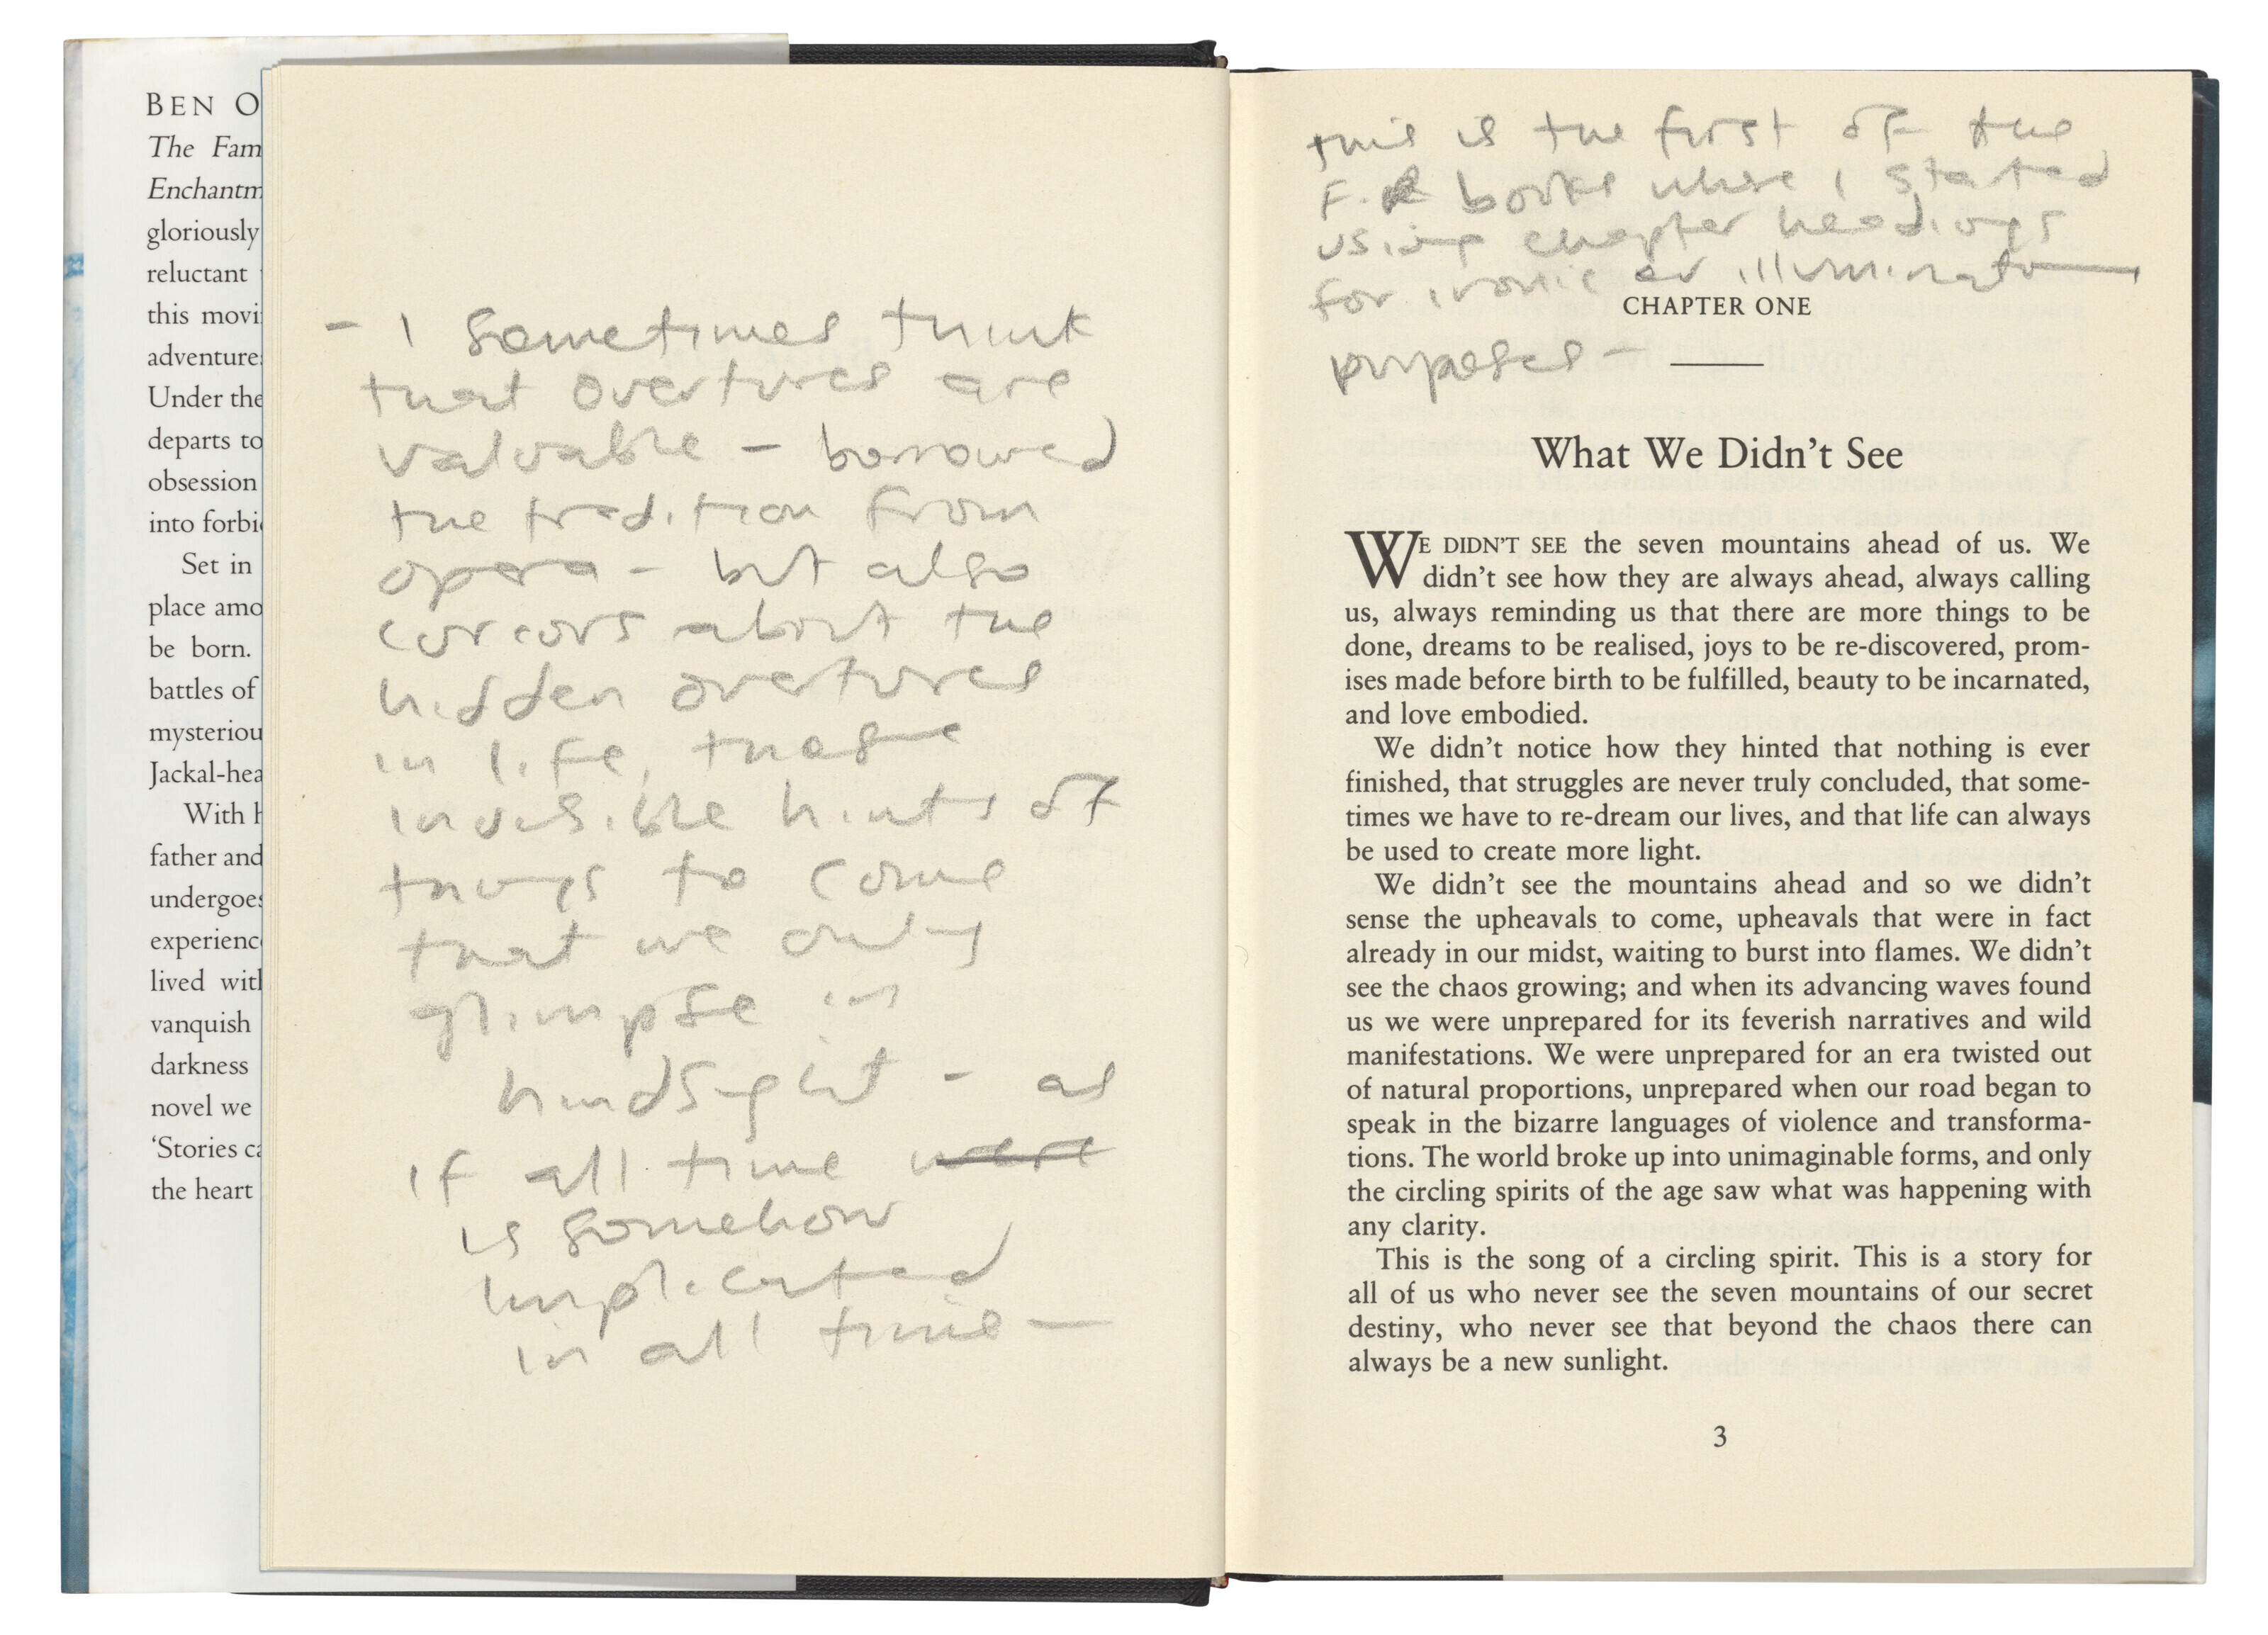 BEN O
The Fam
Enchantm
gloriously
reluctant
this movi
adventures
Under the
departs to
obsession
into forbi
Set in
place amo
be born.
battles of
mysteriou
Jackal-hea
With h
father and
undergoes
experienc
lived with
vanquish
darkness
novel we
‘Stories ca
the heart
- I sometimes think
that overtures are
valuable - borrowed
the tradition from
opera - but also
curious about the
hidden overtures
in life, those
invisible hints of
things to come
that we only
glimpse in
hindsight - as
if all time were
is somehow
implicated
in all time —
this is the first of the
F.R books where I started
using chapter headings
for ironic or illuminatory
purposes -
CHAPTER ONE
What We Didn’t See
WE DIDN’T SEE the seven mountains ahead of us. We
didn’t see how they are always ahead, always calling
us, always reminding us that there are more things to be
done, dreams to be realised, joys to be re-discovered, prom-
ises made before birth to be fulfilled, beauty to be incarnated,
and love embodied.
We didn’t notice how they hinted that nothing is ever
finished, that struggles are never truly concluded, that some-
times we have to re-dream our lives, and that life can always
be used to create more light.
We didn’t see the mountains ahead and so we didn’t
sense the upheavals to come, upheavals that were in fact
already in our midst, waiting to burst into flames. We didn’t
see the chaos growing; and when its advancing waves found
us we were unprepared for its feverish narratives and wild
manifestations. We were unprepared for an era twisted out
of natural proportions, unprepared when our road began to
speak in the bizarre languages of violence and transforma-
tions. The world broke up into unimaginable forms, and only
the circling spirits of the age saw what was happening with
any clarity.
This is the song of a circling spirit. This is a story for
all of us who never see the seven mountains of our secret
destiny, who never see that beyond the chaos there can
always be a new sunlight.
3